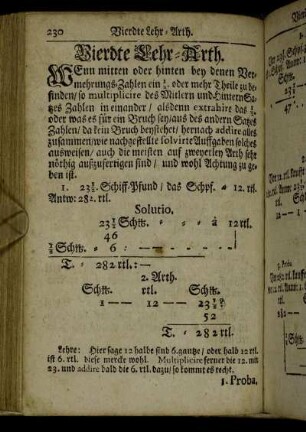 230 Vierdte Lehr-Arth.
Vierdte Lehr-Arth.
WEnn mitten oder hinten bey denen Ver-
mehrungs-Zahlen ein ½. oder mehr Theile zu be-
finden/ so multiplicire des Mitlern und Hintern Sa-
tzes Zahlen in einander/ alsdenn extrahire das ½.
oder was es für ein Bruch sey/ aus des andern Satzes
Zahlen/ da kein Bruch beystehet/ hernach addire alles
zusammen/ wie nachgesetzte solvirte Auffgaben solches
ausweisen/ auch die meisten auff zweyerley Arth sehr
nöthig auszufertigen sind/ und wohl Achtung zu ge-
ben ist.
1. 23½. Schiff-Pfund/ das Schpf. 12. rtl.
Antw: 282. rtl.
Solutio.
23½ Schtt. à 12 rtl.
46
½ Schtt. 6 :
T. 282 rtl: —
2. Arth.
Schtt. rtl. Schtt.
1 — 12 — 23½
52
T. 282 rtl:
Lehre: Hier sage 12 halbe sind 6. gantze/ oder halb 12 rtl.
ist 6. rtl. diese mercke wohl. Multiplicire ferner die 12. mit
23. und addire bald die 6. rtl. dazu/ so kommt es recht.
1. Proba.